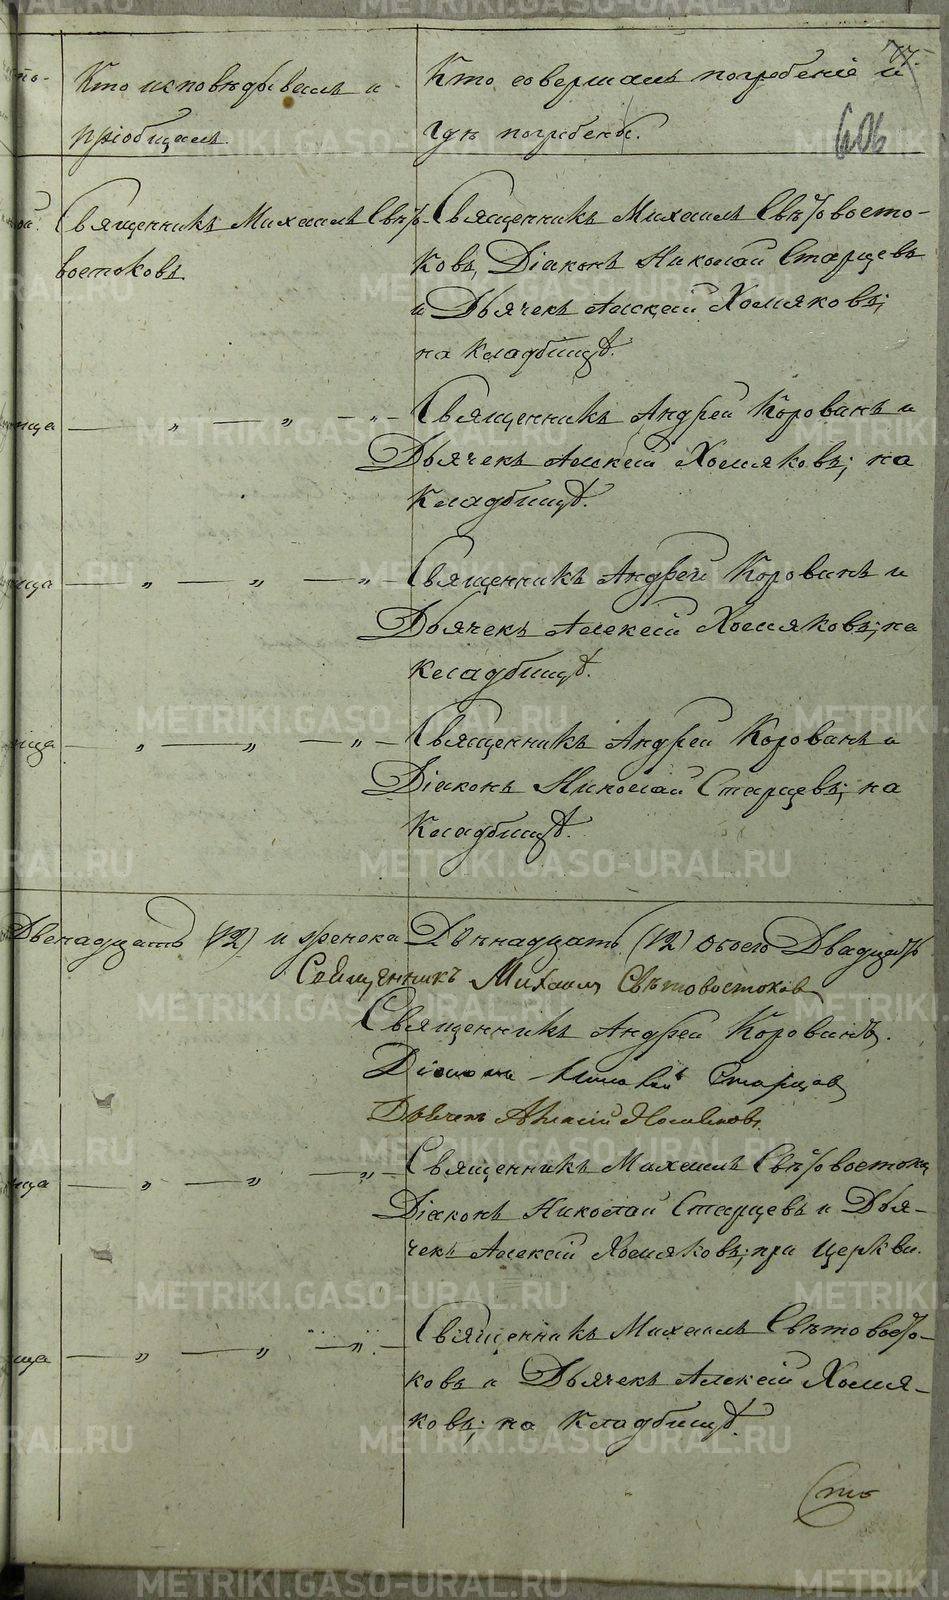 77.
606
Кто исповѣдывалъ и
пріобщалъ.
Кто совершалъ погребеніе и
гдѣ погребены.
Священникъ Михаилъ Свѣто-
востоковъ.
Священникъ Михаилъ Свѣтовосто-
ковъ, Діаконъ Николай Старцевъ
и Дьячекъ Алексѣй Хомяковъ;
на кладбищѣ.
ница — „ — „ — „ — Священникъ Андрей Корованъ и
Дьячекъ Алексѣй Хомяковъ; на
кладбищѣ.
ица — „ — „ — „ — Священникъ Андрей Корованъ и
Дьячекъ Алексѣй Хомяковъ; на
кладбищѣ.
ница — „ — „ — „ — Священникъ Андрей Корованъ и
Діаконъ Николай Старцевъ; на
кладбищѣ.
Двенадцать (12) и женска Двѣнадцать (12) обоего Двадцать
Священникъ Михаилъ Свѣтовостоковъ
Священникъ Андрей Корованъ.
Діаконъ Николай Старцов
Дьячекъ Алексій Хомяковъ.
ица — „ — „ — „ — Священникъ Михаилъ Свѣтовостоковъ
Діаконъ Николай Старцевъ и Дья-
чекъ Алексій Хомяковъ; при церкви.
ица — „ — „ — „ — Священникъ Михаилъ Свѣтовосто-
ковъ и Дьячекъ Алексій Хомя-
ковъ; на кладбищѣ.
METRIKI.GASO-URAL.RU